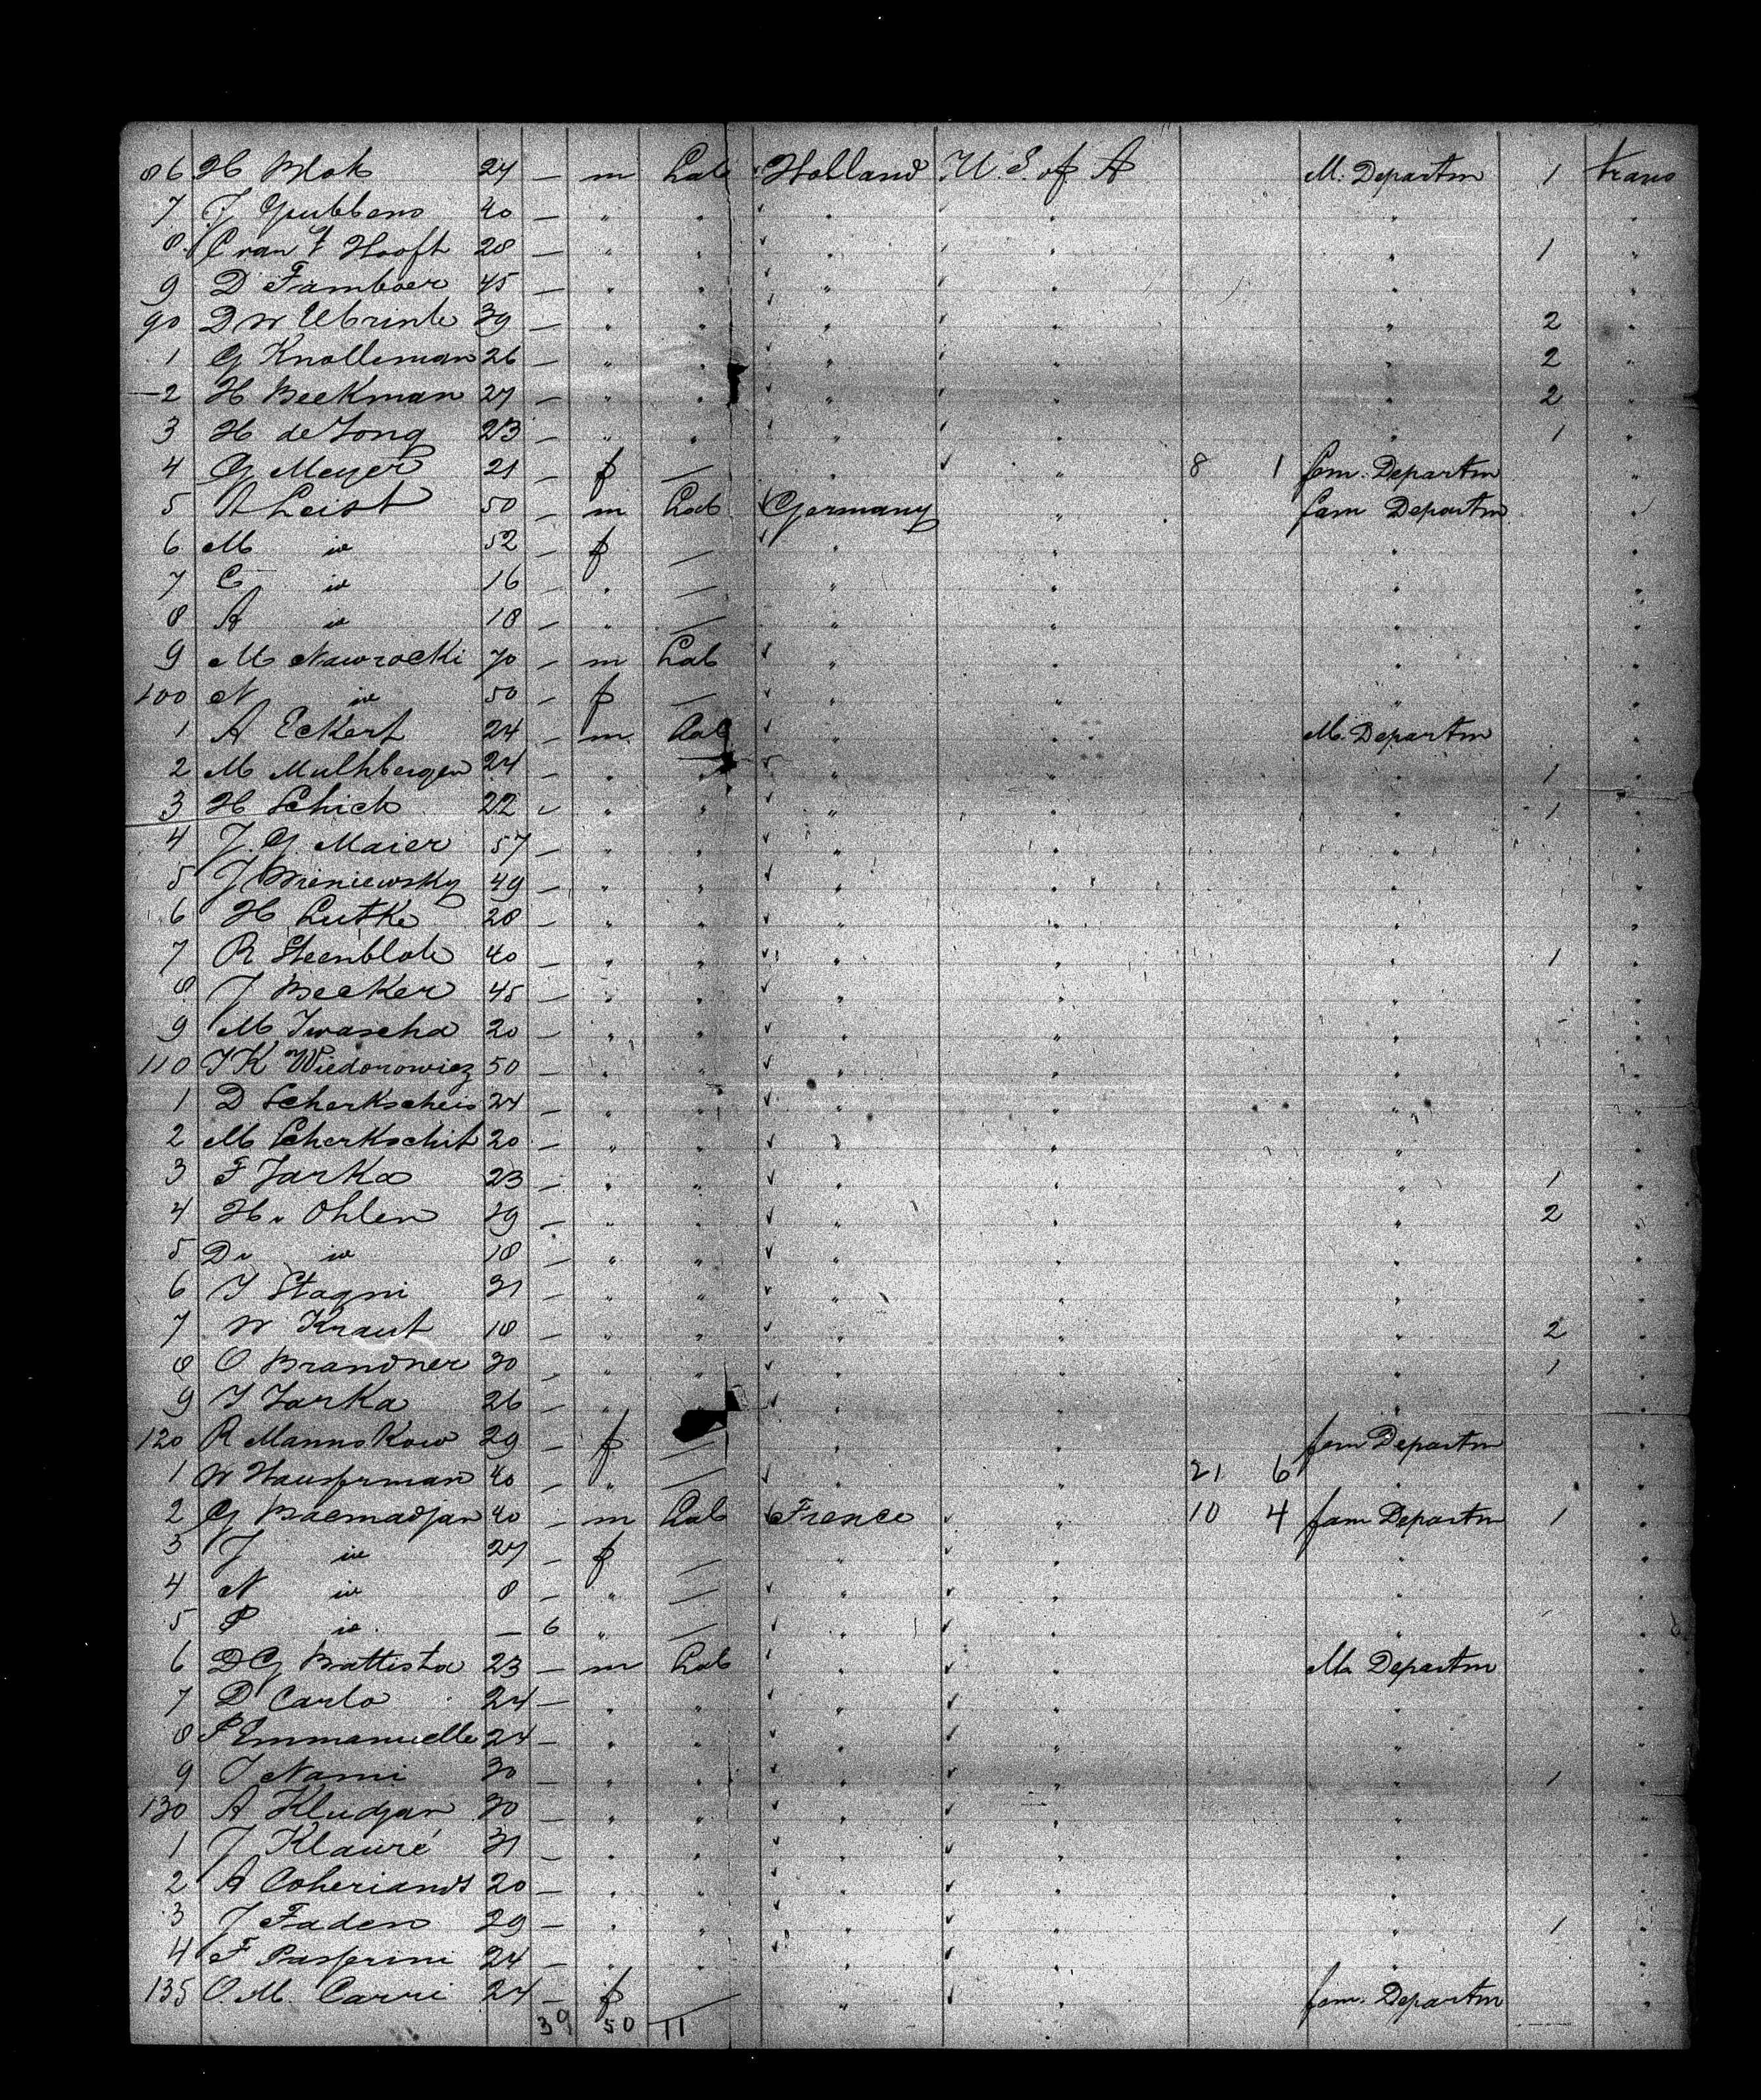 86 H Blok 24 — m Lab Holland U.S. of A M. Departm 1 trans
7 J Grubbens 40 — " " " " "
8 C van 't Hooft 28 — " " " " " 1 "
9 D Famboer 45 — " " " " " "
90 D W Ubrink 39 — " " " " " 2 "
1 G Knolleman 26 — " " " " " 2 "
2 H Beekman 27 — " " " " " 2 "
3 H de Jong 23 — " " " " " 1 "
4 G Meyer 21 — f — " " 8 1 fem. Departm "
5 A Leist 50 — m Lab Germany " fam Departm "
6 M id 52 — f — " " " "
7 C id 16 — " — " " " "
8 A id 18 — " — " " " "
9 M Nawrocki 70 — m Lab " " " "
100 N id 50 — f — " " " "
1 A Eckert 24 — m Lab " " M. Departm "
2 M Mulhbergen 24 — " " " " " 1 "
3 H Schick 22 — " " " " " 1 "
4 J. G. Maier 57 — " " " " " "
5 J Wieniewsky 49 — " " " " " "
6 H Lutke 28 — " " " " " "
7 R Steenblok 40 — " " " " " 1 "
8 J Becker 45 — " " " " " "
9 M Iwascha 20 — " " " " " "
110 J K Wiedorowicz 50 — " " " " " "
1 D Scherkscheis 24 — " " " " " "
2 M Scherkschit 20 — " " " " " "
3 F Jarka 23 — " " " " " 1 "
4 H v Ohlen 19 — " " " " " 2 "
5 D v id 18 — " " " " " "
6 J Stagni 31 — " " " " " "
7 W Kraut 18 — " " " " " 2 "
8 O Brandner 30 — " " " " " 1 "
9 J Jarka 26 — " " " " "
120 R Mannskow 29 — f — " " fem Departm "
1 W Hausfrman 40 — " — " " 21 6 " "
2 G Bacmadjan 40 — m Lab France " 10 4 fam Departm 1 "
3 J id 27 — f — " " " "
4 N id 8 — " — " " " "
5 P id — 6 " — " " " "
6 D G Battista 23 — m Lab " " M. Departm "
7 D Carlo 24 — " " " " " "
8 P Emmanuelle 24 — " " " " " "
9 J Nami 30 — " " " " " 1 "
130 A Kludjan 30 — " " " " " "
1 J Klauré 31 — " " " " " "
2 A Coheriands 20 — " " " " " "
3 J Faden 29 — " " " " " 1 "
4 F Passerini 24 — " " " " " "
135 O. M. Carri 24 — f — " " fem. Departm "
39 50 11